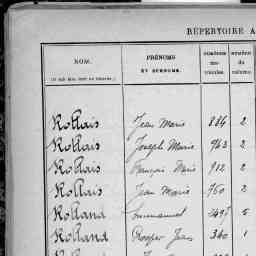 RÉPERTOIRE A
NOM. PRÉNOMS ET SURNOMS. NUMÉROS matricules. NUMÉROS du volume.
Rollais Jean Marie 884 2
Rollais Joseph Marie 963 2
Rollais François Marie 912 2
Rollais Jean Marie 760 2
Rolland Emmanuel 2497 5
Rolland Prosper Jean 340 1